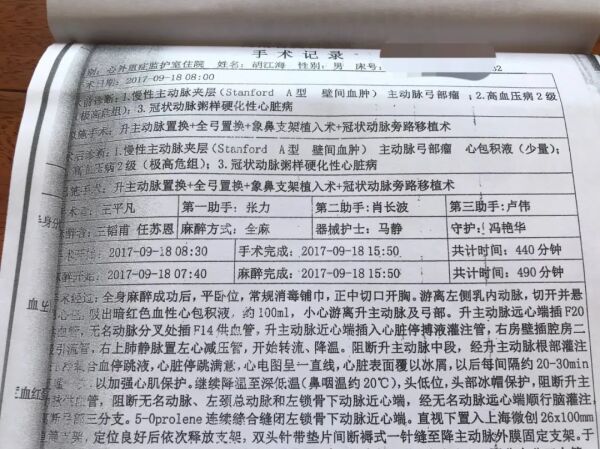 手术记录
别: 心外重症监护室住院 姓名: 胡江海 性别: 男 床号:
术日期: 2017-09-18 08:00
术前诊断: 1.慢性主动脉夹层(Stanford A型 壁间血肿) 主动脉弓部瘤 ;2.高血压病2级
(极高危组); 3.冠状动脉粥样硬化性心脏病
施手术: 升主动脉置换+全弓置换+象鼻支架植入术+冠状动脉旁路移植术
术后诊断: 1.慢性主动脉夹层(Stanford A型 壁间血肿 主动脉弓部瘤 心包积液 (少量);
高血压病2级 (极高危组); 3.冠状动脉粥样硬化性心脏病
施手术: 升主动脉置换+全弓置换+象鼻支架植入术+冠状动脉旁路移植术
王平凡 第一助手: 张力 第二助手:肖长波 第三助手:卢伟
王韬甫 任苏恩 麻醉方式: 全麻 器械护士: 马静 守护: 冯艳华
2017-09-18 08:30 手术完成: 2017-09-18 15:50 共计时间: 440分钟
麻醉开始: 2017-09-18 07:40 麻醉完成: 2017-09-18 15:50 共计时间: 490分钟
术经过: 全身麻醉成功后, 平卧位, 常规消毒铺巾, 正中切口开胸。游离左侧乳内动脉, 切开并悬
心包, 吸出暗红色血性心包积液, 约100ml, 小心游离升主动脉及弓部。升主动脉远心端插F20
血管, 无名动脉分叉处插F14供血管, 升主动脉近心端插入心脏停搏液灌注管, 右房壁插腔房二
级引流管, 右上肺静脉置左心减压管, 开始转流、降温。阻断升主动脉中段, 经升主动脉根部灌注
含血停跳液, 心脏停跳满意, 心电图呈一直线, 心脏表面覆以冰屑, 以后每间隔约20-30min
以加强心肌保护。继续降温至深低温(鼻咽温约20℃), 头低位, 头部冰帽保护, 阻断升主
供血管, 阻断无名动脉、左颈总动脉和左锁骨下动脉近心端, 经无名动脉远心端顺行脑灌注
弓部三分支。5-0prolene连续缝合缝闭左锁骨下动脉近心端。直视下置入上海微创26x100mm
支架, 定位良好后依次释放支架, 双头针带垫片间断褥式一针缝至降主动脉外膜固定支架。于